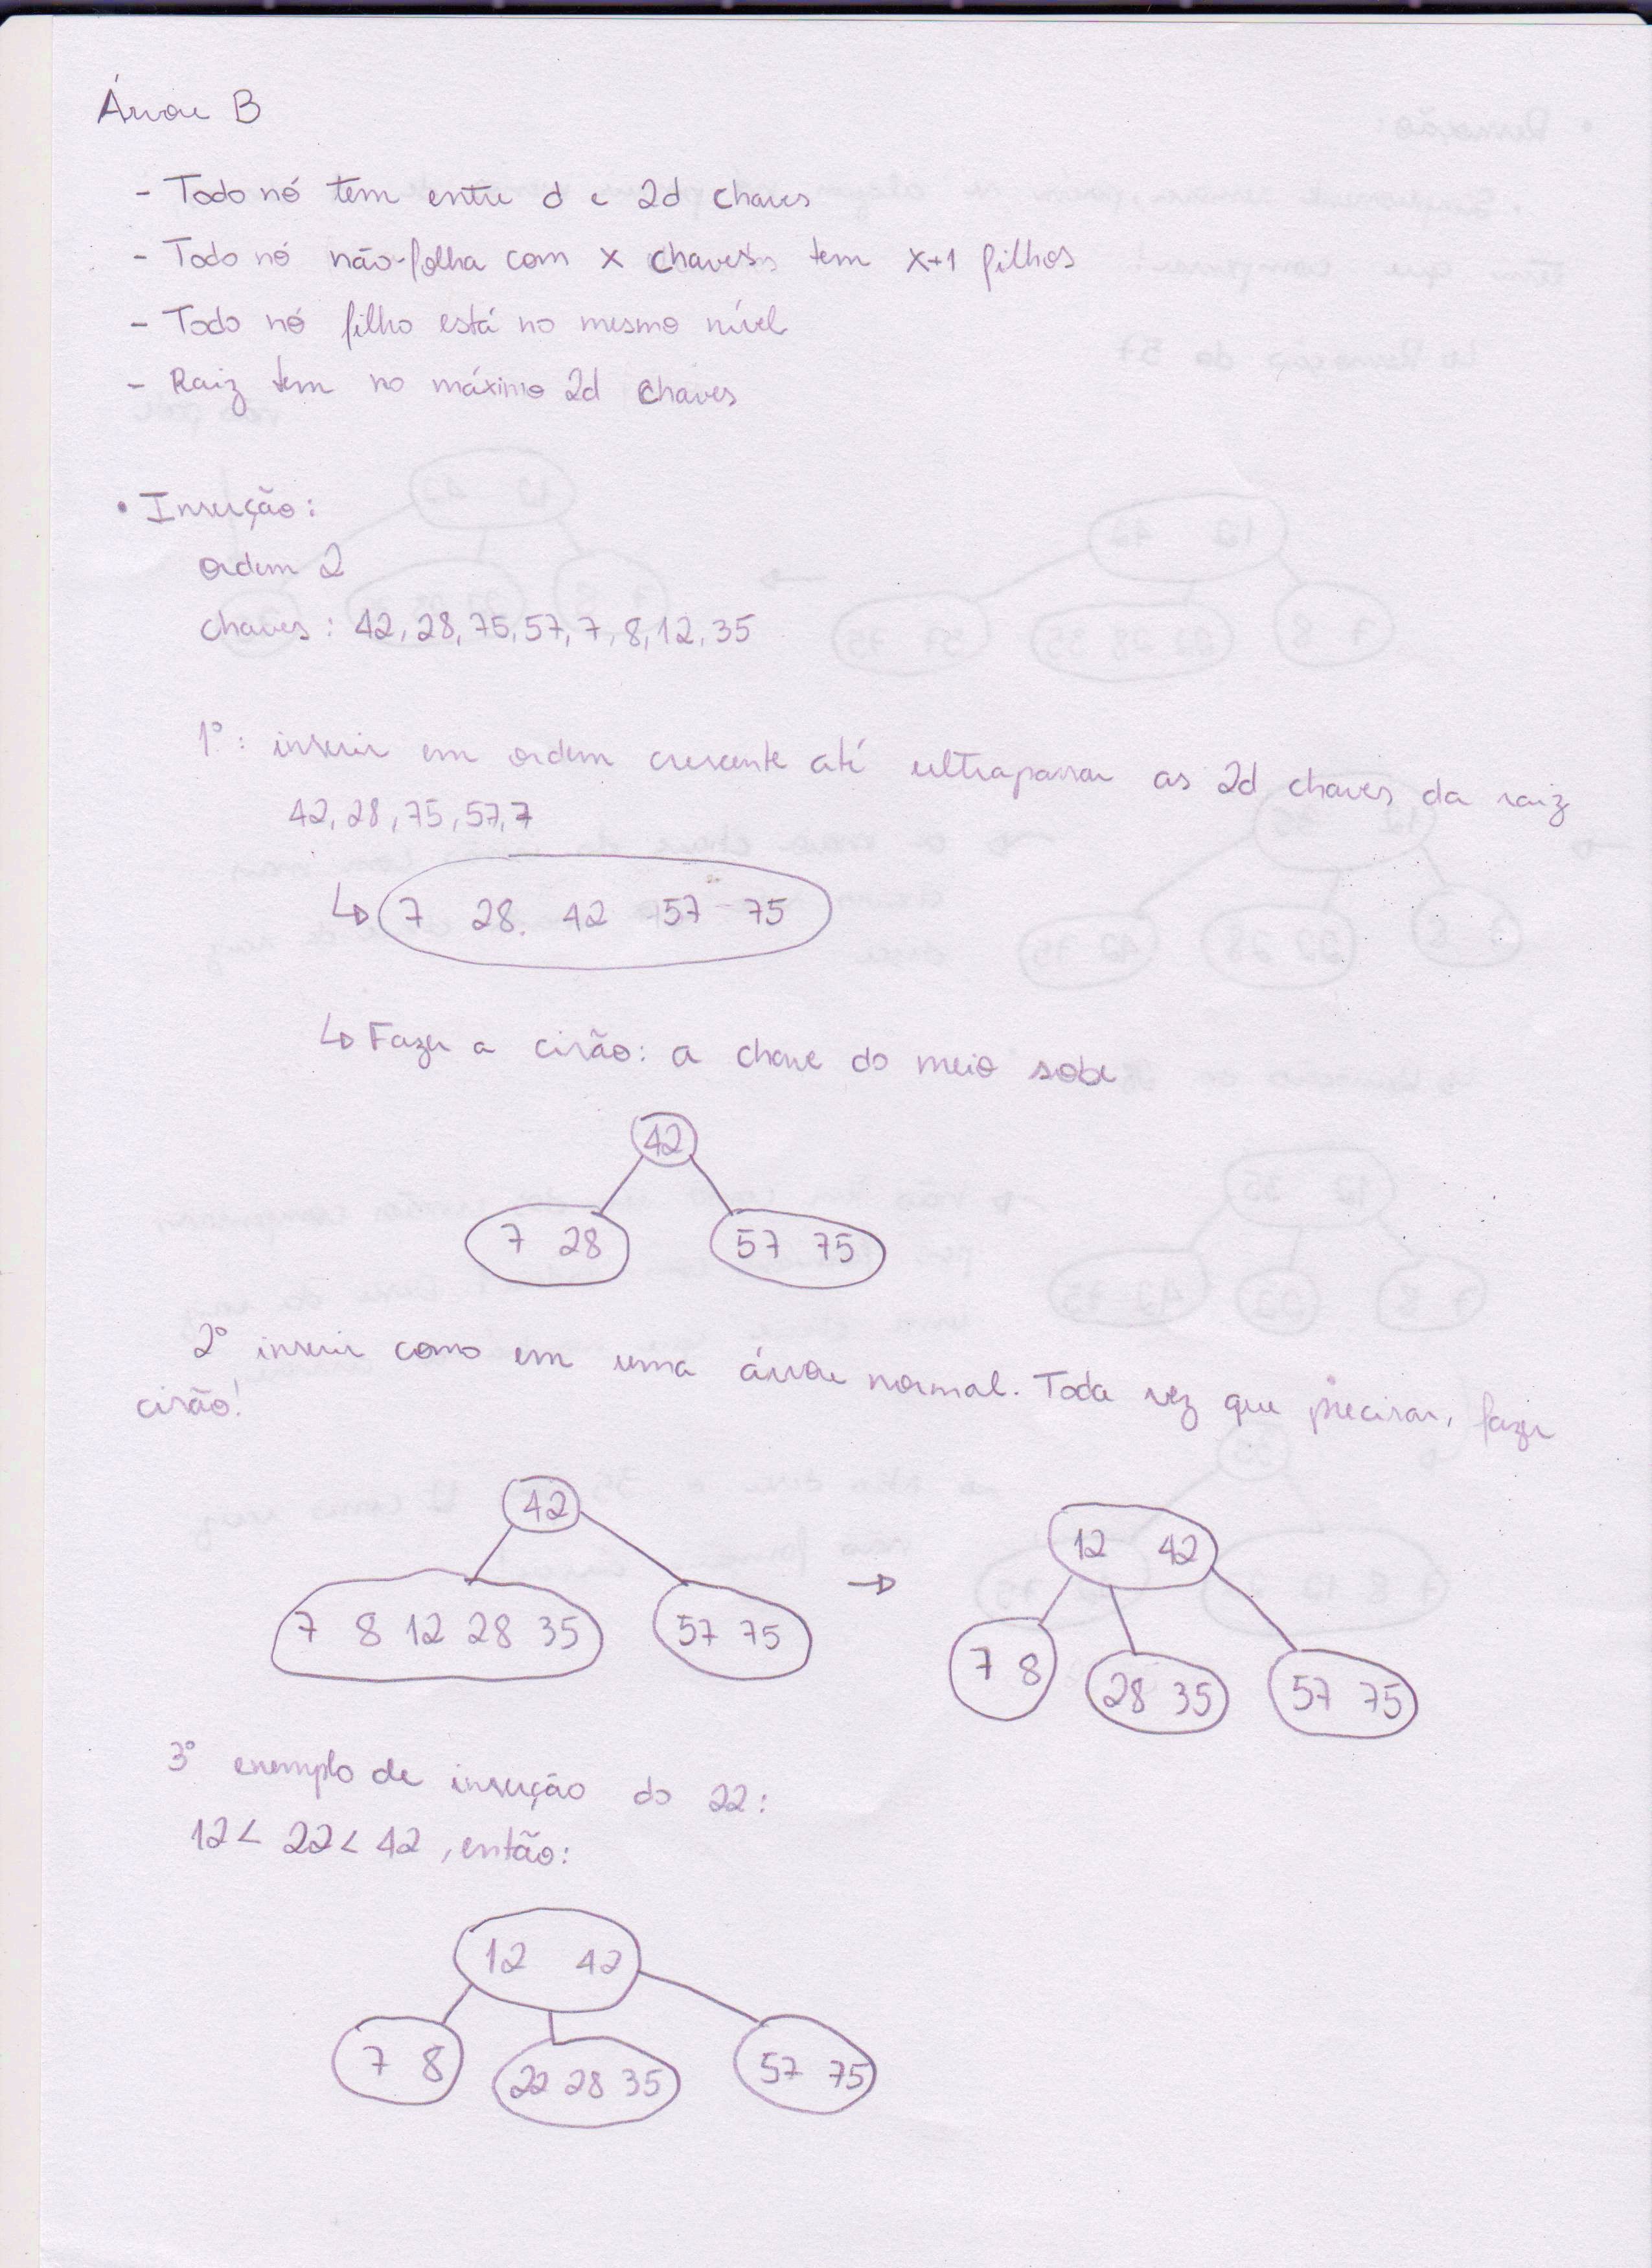 Árvore B
- Todo nó tem entre d e 2d chaves
- Todo nó não-folha com x chaves tem x+1 filhos
- Todo nó filho está no mesmo nível
- Raiz tem no máximo 2d chaves
• Inserção:
ordem 2
chaves: 42, 28, 75, 57, 7, 8, 12, 35
1°: inserir em ordem crescente até ultrapassar as 2d chaves da raiz
42, 28, 75, 57, 7
↳ 7 28 42 57 75
↳ Fazer a cisão: a chave do meio sobe
42
7 28 57 75
2° inserir como em uma árvore normal. Toda vez que precisar, fazer
cisão!
42
7 8 12 28 35 57 75
→
12 42
7 8 28 35 57 75
3° exemplo de inserção do 22:
12 < 22 < 42, então:
12 42
7 8 22 28 35 57 75